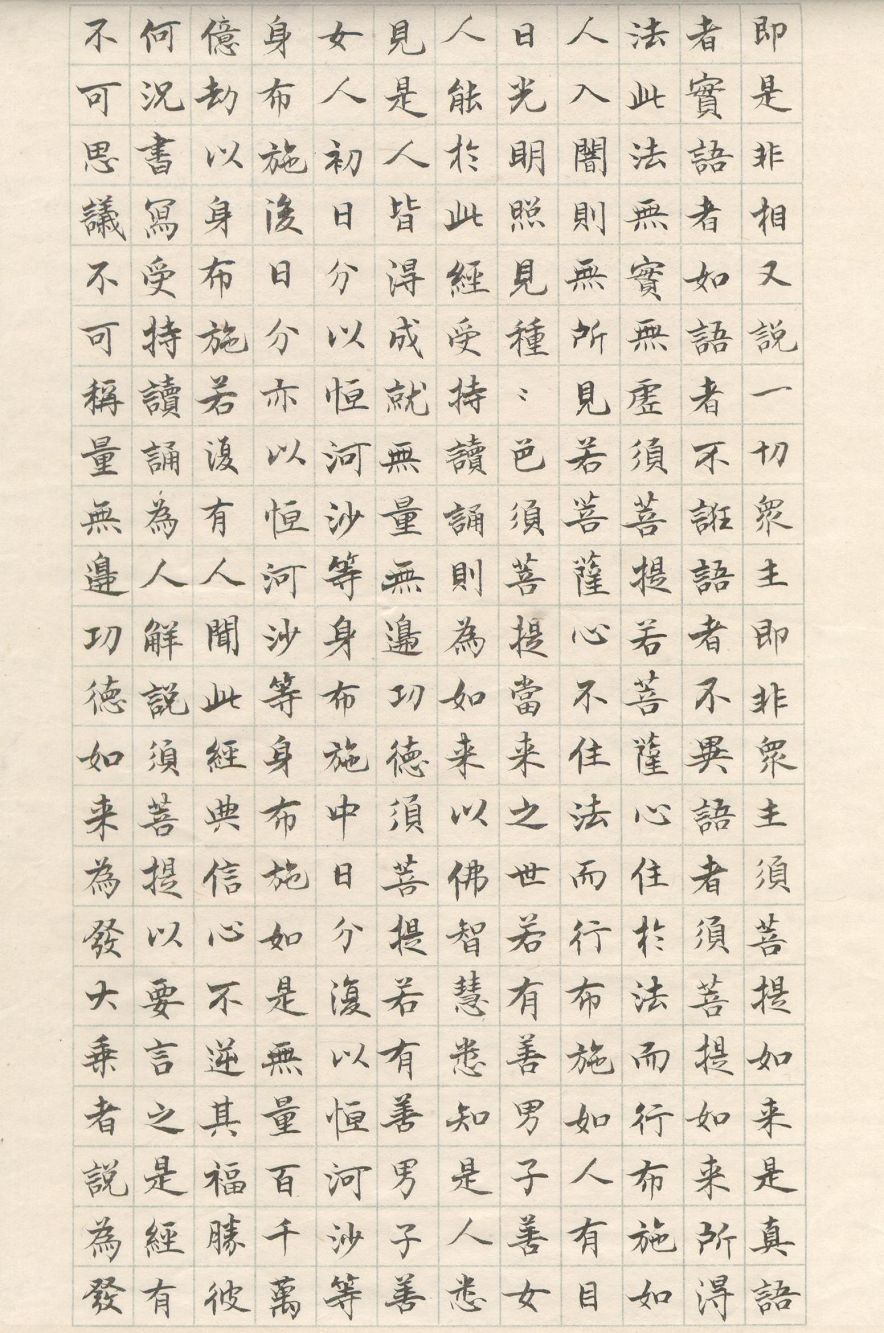 即是非相又説一切眾生即非眾生須菩提如来是真語
者實語者如語者不誑語者不異語者須菩提如来所得
法此法無實無虛須菩提若菩薩心住於法而行布施如
人入闇則無所見若菩薩心不住法而行布施如人有目
日光明照見種〻色須菩提當来之世若有善男子善女
人能於此經受持讀誦則為如来以佛智慧悉知是人悉
見是人皆得成就無量無邊功德須菩提若有善男子善
女人初日分以恒河沙等身布施中日分復以恒河沙等
身布施後日分亦以恒河沙等身布施如是無量百千萬
億劫以身布施若復有人聞此經典信心不逆其福勝彼
何況書寫受持讀誦為人解説須菩提以要言之是經有
不可思議不可稱量無邊功德如来為發大乗者説為發